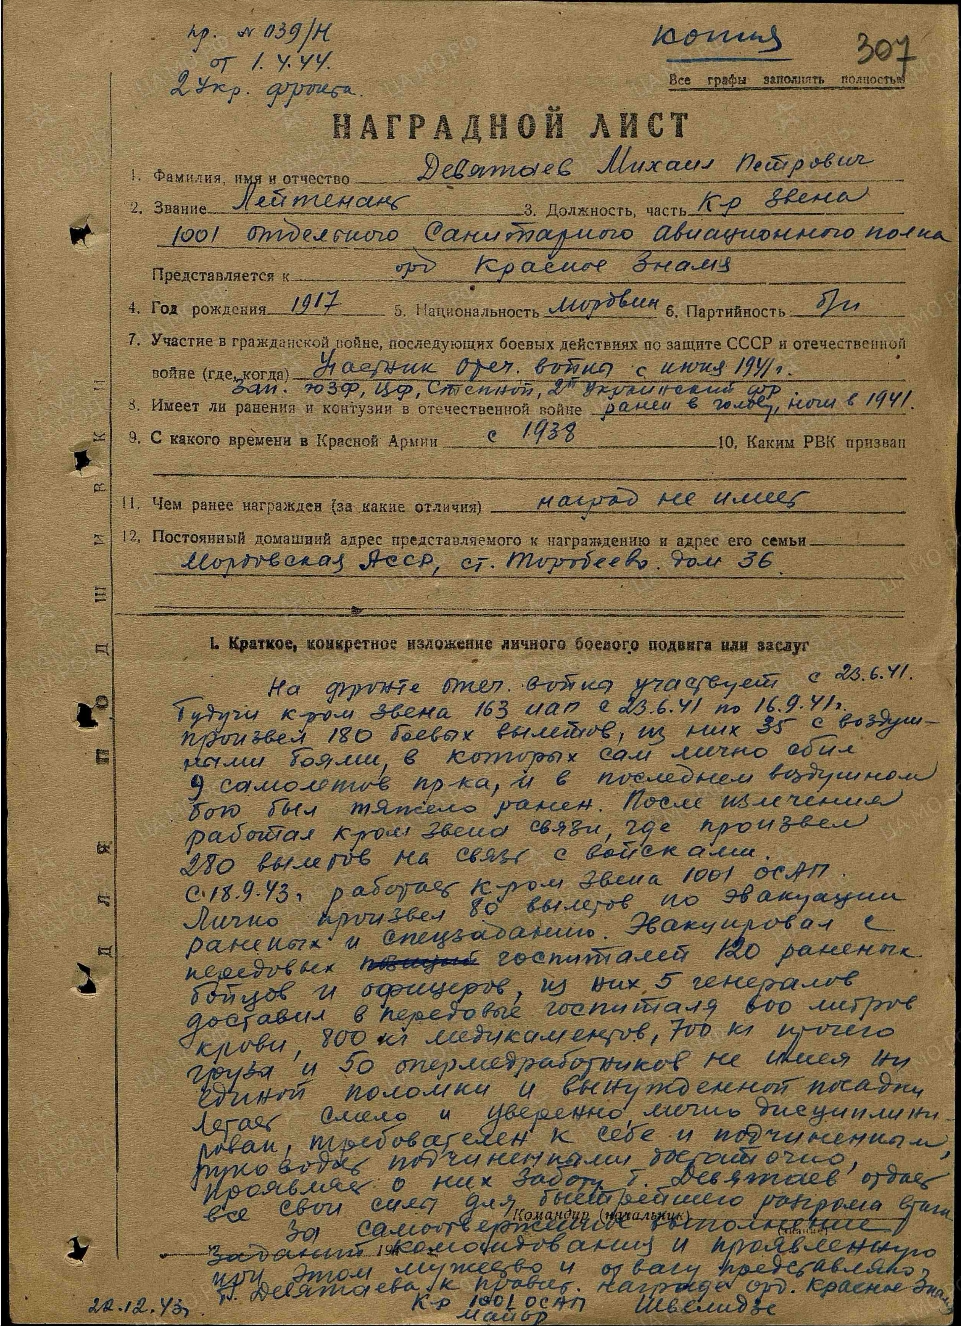 пр. № 039/Н
от 1.4.44.
2 Укр. фронта.
копия
307
Все графы заполнять полностью
НАГРАДНОЙ ЛИСТ
1. Фамилия, имя и отчество Девятаев Михаил Петрович
2. Звание Лейтенант 3. Должность, часть К-р звена
1001 отдельного Санитарного авиационного полка
Представляется к орд Красное Знамя
4. Год рождения 1917 5. Национальность мордвин 6. Партийность б/п
7. Участие в гражданской войне, последующих боевых действиях по защите СССР и отечественной
войне (где, когда) Участник Отеч. войны с июня 1941 г.
Зап. ЮЗФ, ЦФ, Степной, 2й Украинский фр.
8. Имеет ли ранения и контузии в отечественной войне ранен в голову, ноги в 1941.
9. С какого времени в Красной Армии с 1938 10, Каким РВК призван
11. Чем ранее награжден (за какие отличия) наград не имеет
12, Постоянный домашний адрес представляемого к награждению и адрес его семьи
Мордовская АССР, ст. Торбеево. дом 36
ДЛЯ ПОДШИВКИ
I. Краткое, конкретное изложение личного боевого подвига или заслуг
На фронте отеч. войны участвует с 23.6.41.
Будучи к-ром звена 163 ИАП с 23.6.41 по 16.9.41г.
произвел 180 боевых вылетов, из них 35 с воздуш-
ными боями, в которых сам лично сбил
9 самолетов пр-ка, и в последнем воздушном
бою был тяжело ранен. После излечения
работал к-ром звена связи, где произвел
280 вылетов на связь с войсками.
с 18.9.43г работает к-ром звена 1001 ОСАП.
Лично произвел 80 вылетов по эвакуации
раненых и спецзаданию. Эвакуировал с
передовых госпиталей 120 раненых
бойцов и офицеров, из них 5 генералов
доставил в передовые госпиталя 600 литров
крови, 800 кг медикаментов, 700 кг прочего
груза и 50 опермедработников не имея ни
единой поломки и вынужденной посадки
Летает смело и уверенно лично дисциплини-
рован, требователен к себе и подчиненным,
руководит подчиненными достаточно,
проявляет о них заботу т. Девятаев отдает
все свои силы для быстрейшего разгрома врага
Командир (начальник)
За самоотверженное выполнение
заданий командования и проявленную
при этом мужество и отвагу представляю
т. Девятаева к правит. награде орд. Красное Знамя
К-р 1001 ОСАП
майор Швелидзе
22.12.43г